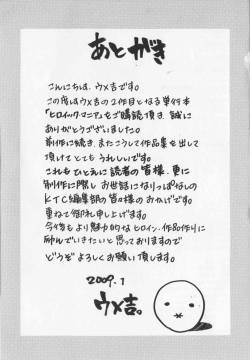 あとがき
こんにちは、ウメ吉です。
この度はウメ吉の2作目となる単行本
『ヒロイックマニア』をご購読頂き、誠に
ありがとうございました。
前作に続き、またこうして作品集を出して
頂けてとてもうれしいです。
これもひとえに読者の皆様、更に
制作に際しお世話になりっぱなしの
KTC編集部の皆々様のおかげです。
重ねて御礼申し上げます。
今後もより魅力的なヒロイン、作品作りに
励んでいきたいと思っておりますので
どうぞよろしくお願い致します。
2009.1
ウメ吉。